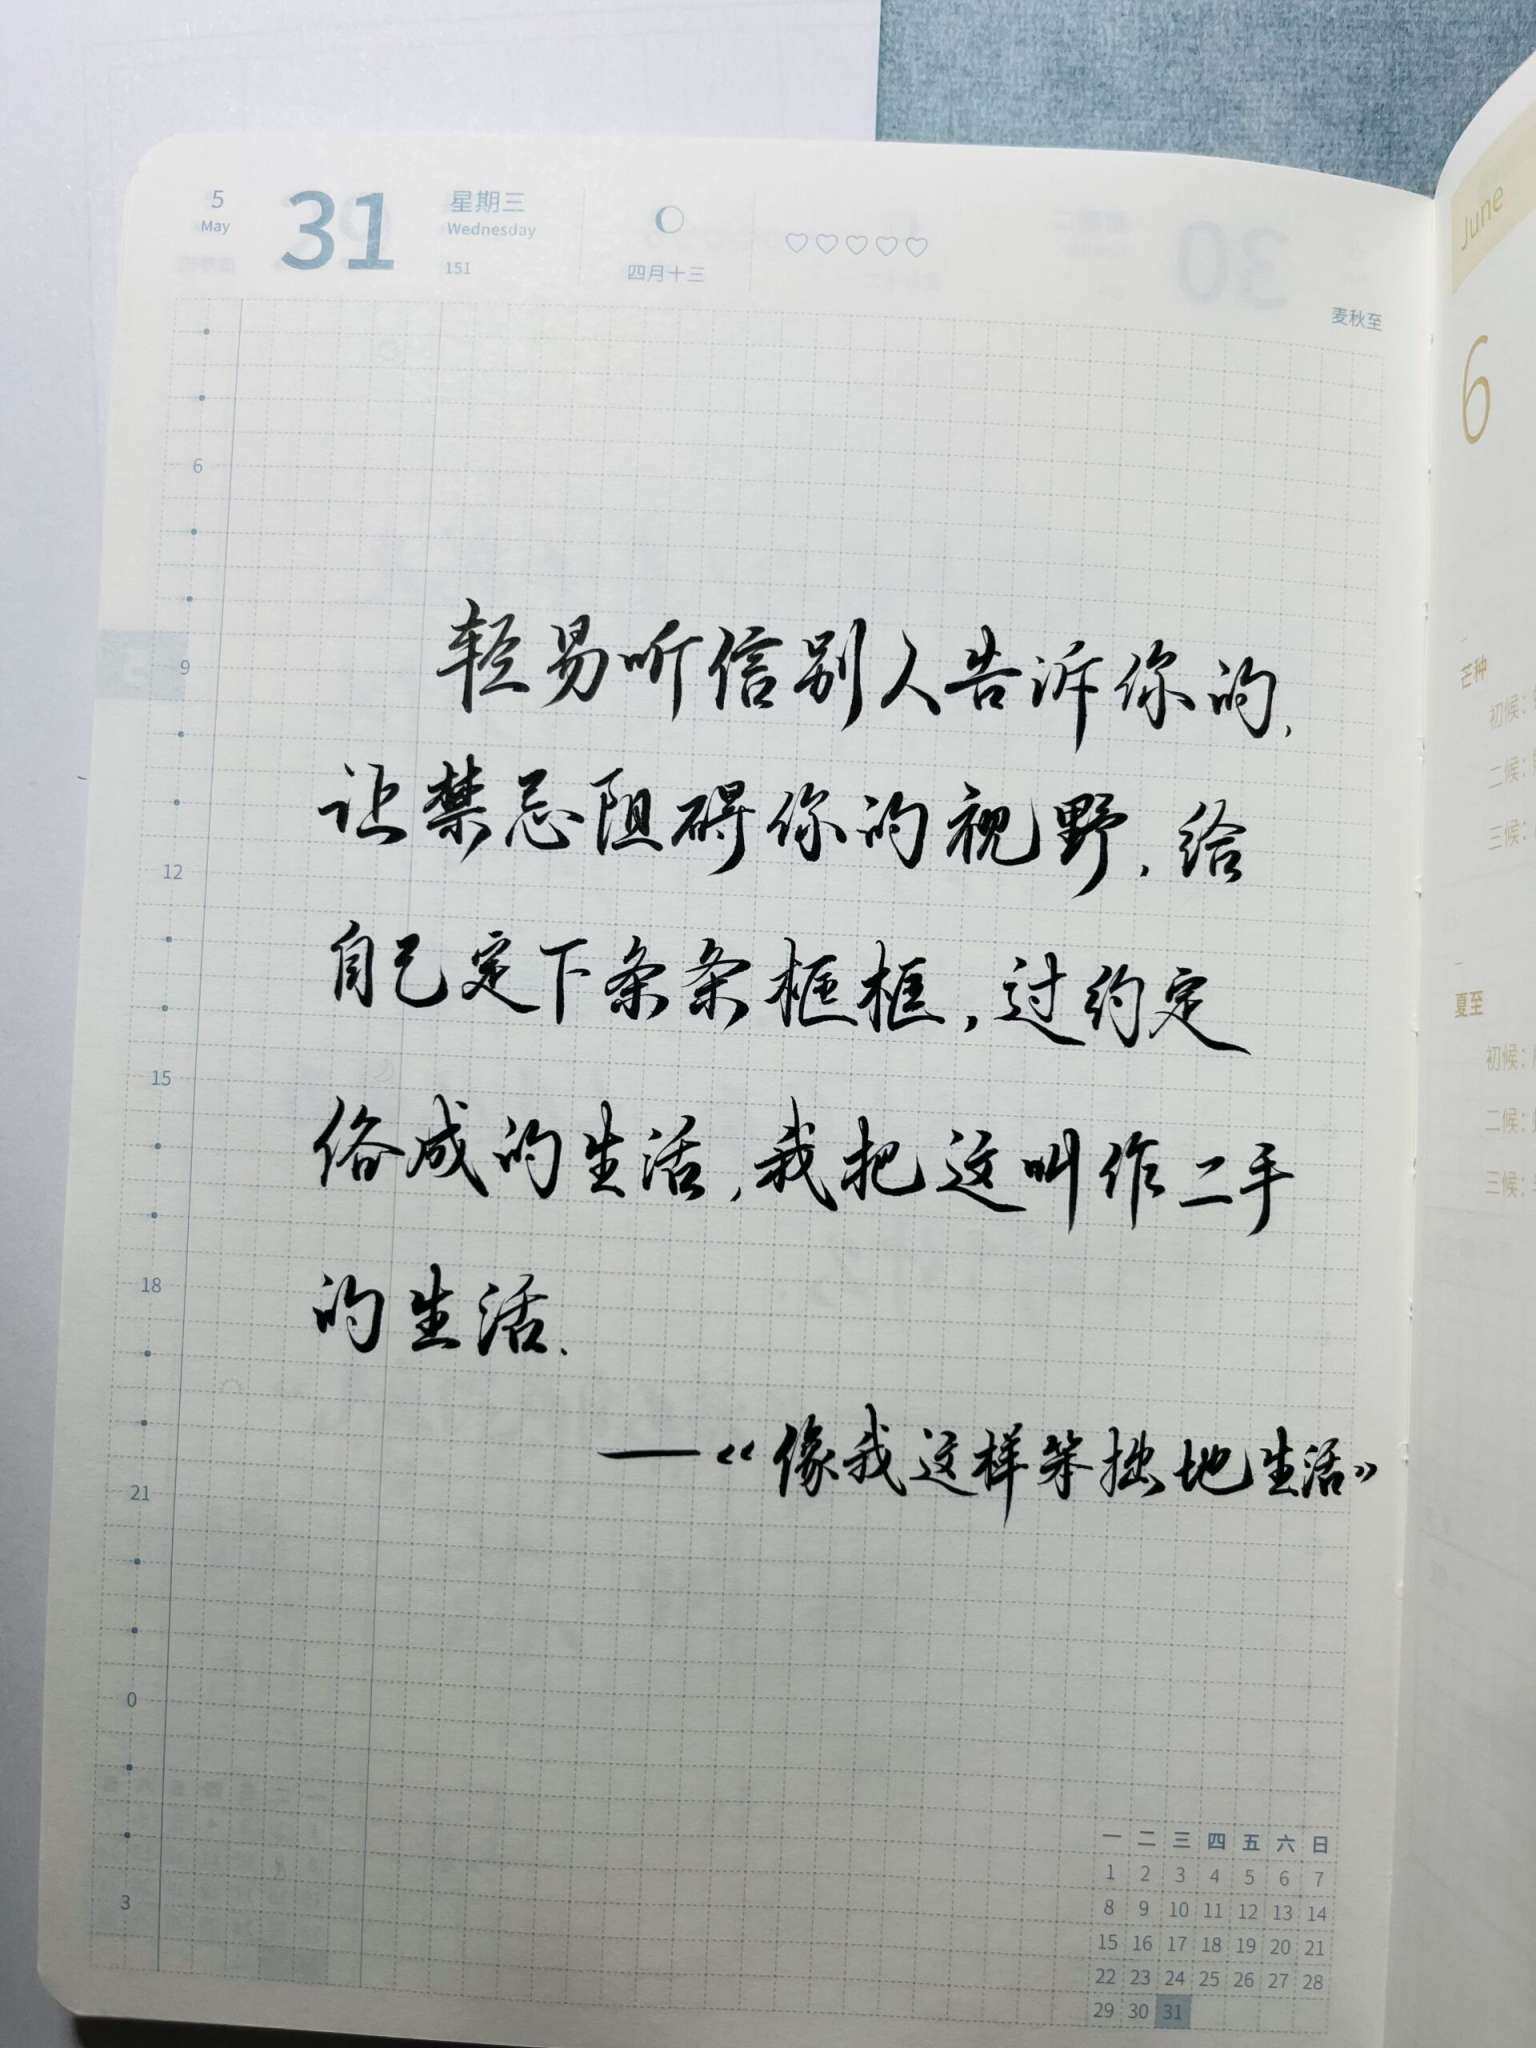 5
May
31
星期三
Wednesday
151
四月十三
麦秋至
轻易听信别人告诉你的,
让禁忌阻碍你的视野,给
自己定下条条框框,过约定
俗成的生活,我把这叫作二手
的生活.
——《像我这样笨拙地生活》
6
9
12
15
18
21
0
3
一 二 三 四 五 六 日
1 2 3 4 5 6 7
8 9 10 11 12 13 14
15 16 17 18 19 20 21
22 23 24 25 26 27 28
29 30 31
June
6
芒种
初候:
二候:
三候:
夏至
初候:
二候:
三候: